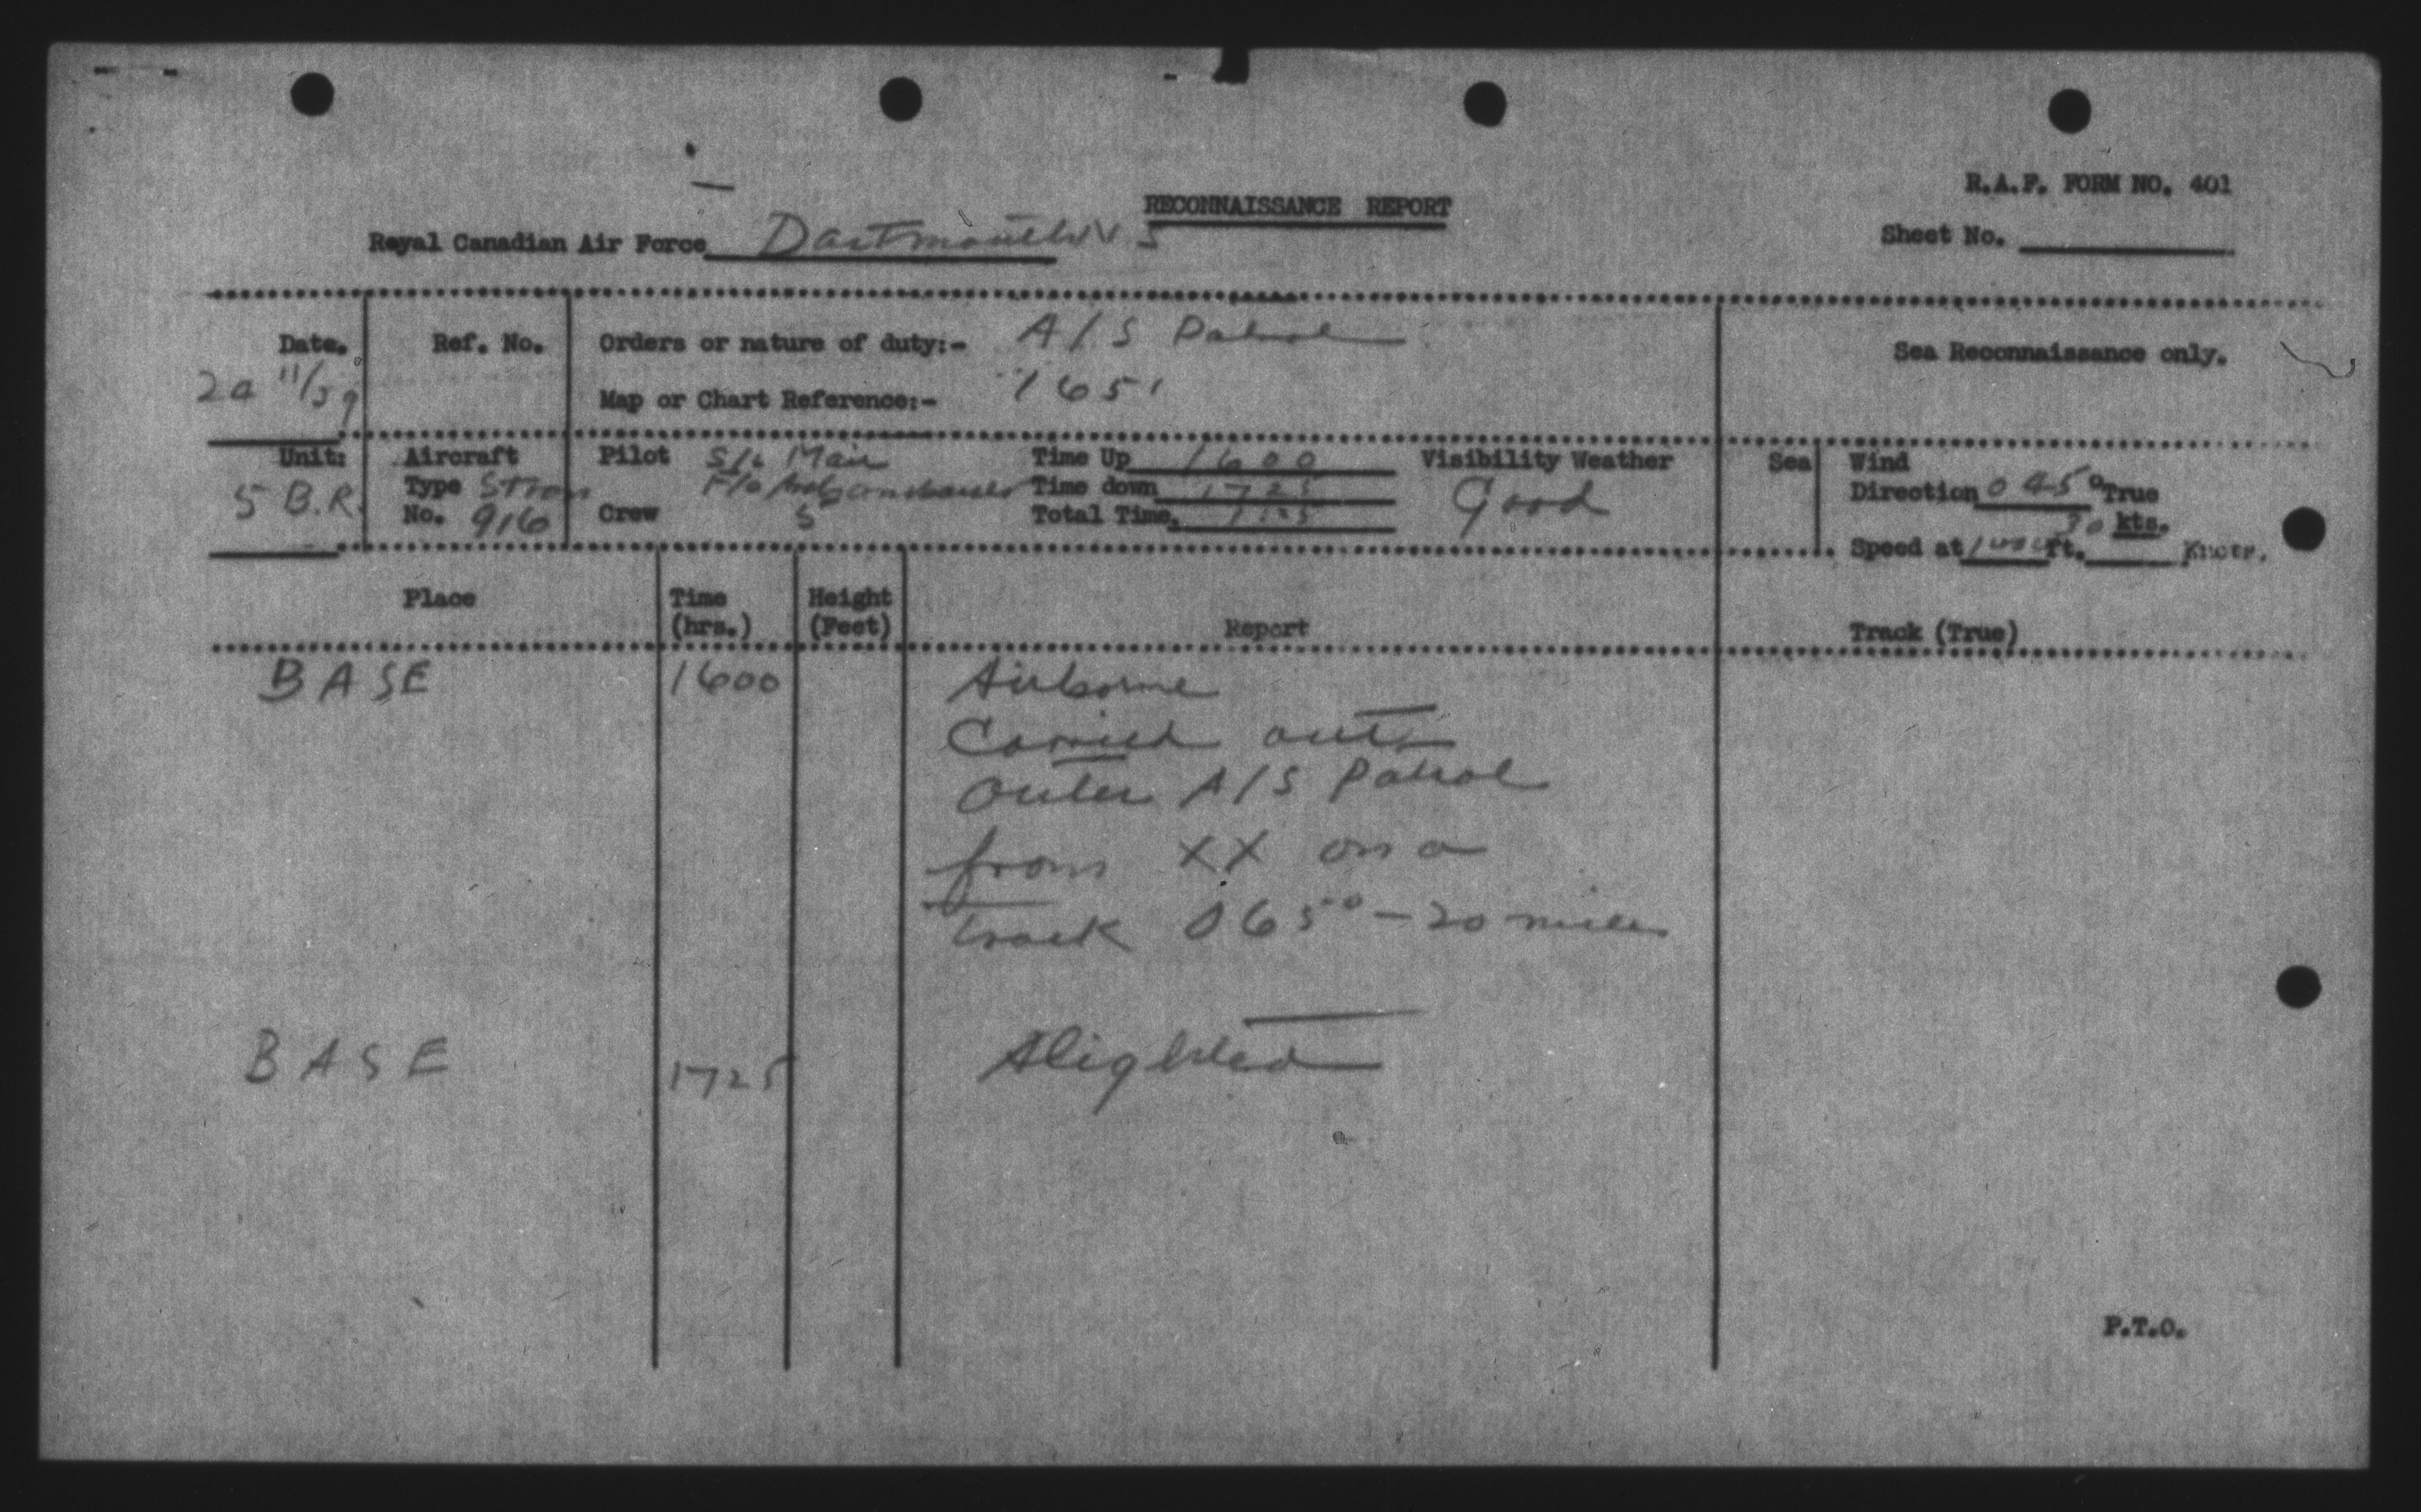 R.A.F. FORM NO. 401
RECONNAISSANCE REPORT
Royal Canadian Air Force Dartmouth N S
Sheet No.
Date. Ref. No. Orders or nature of duty:- A/S Patrol
Sea Reconnaissance only.
11/39
Map or Chart Reference:- 1651
Unit: Aircraft Pilot S/L Mair Time Up 1600 Visibility Weather Sea Wind
5 B.R. Type Stran F/O Time down 1725 Good Direction 045° True
No. 916 Crew 5 Total Time. 1.25
30 kts.
Speed at 1000 ft. Knots.
Place Time (hrs.) Height (Feet) Report Track (True)
BASE 1600 Airborne
Carried out
outer A/S Patrol
from XX on a
track 065° - 20 miles
BASE 1725 Alighted
P.T.O.